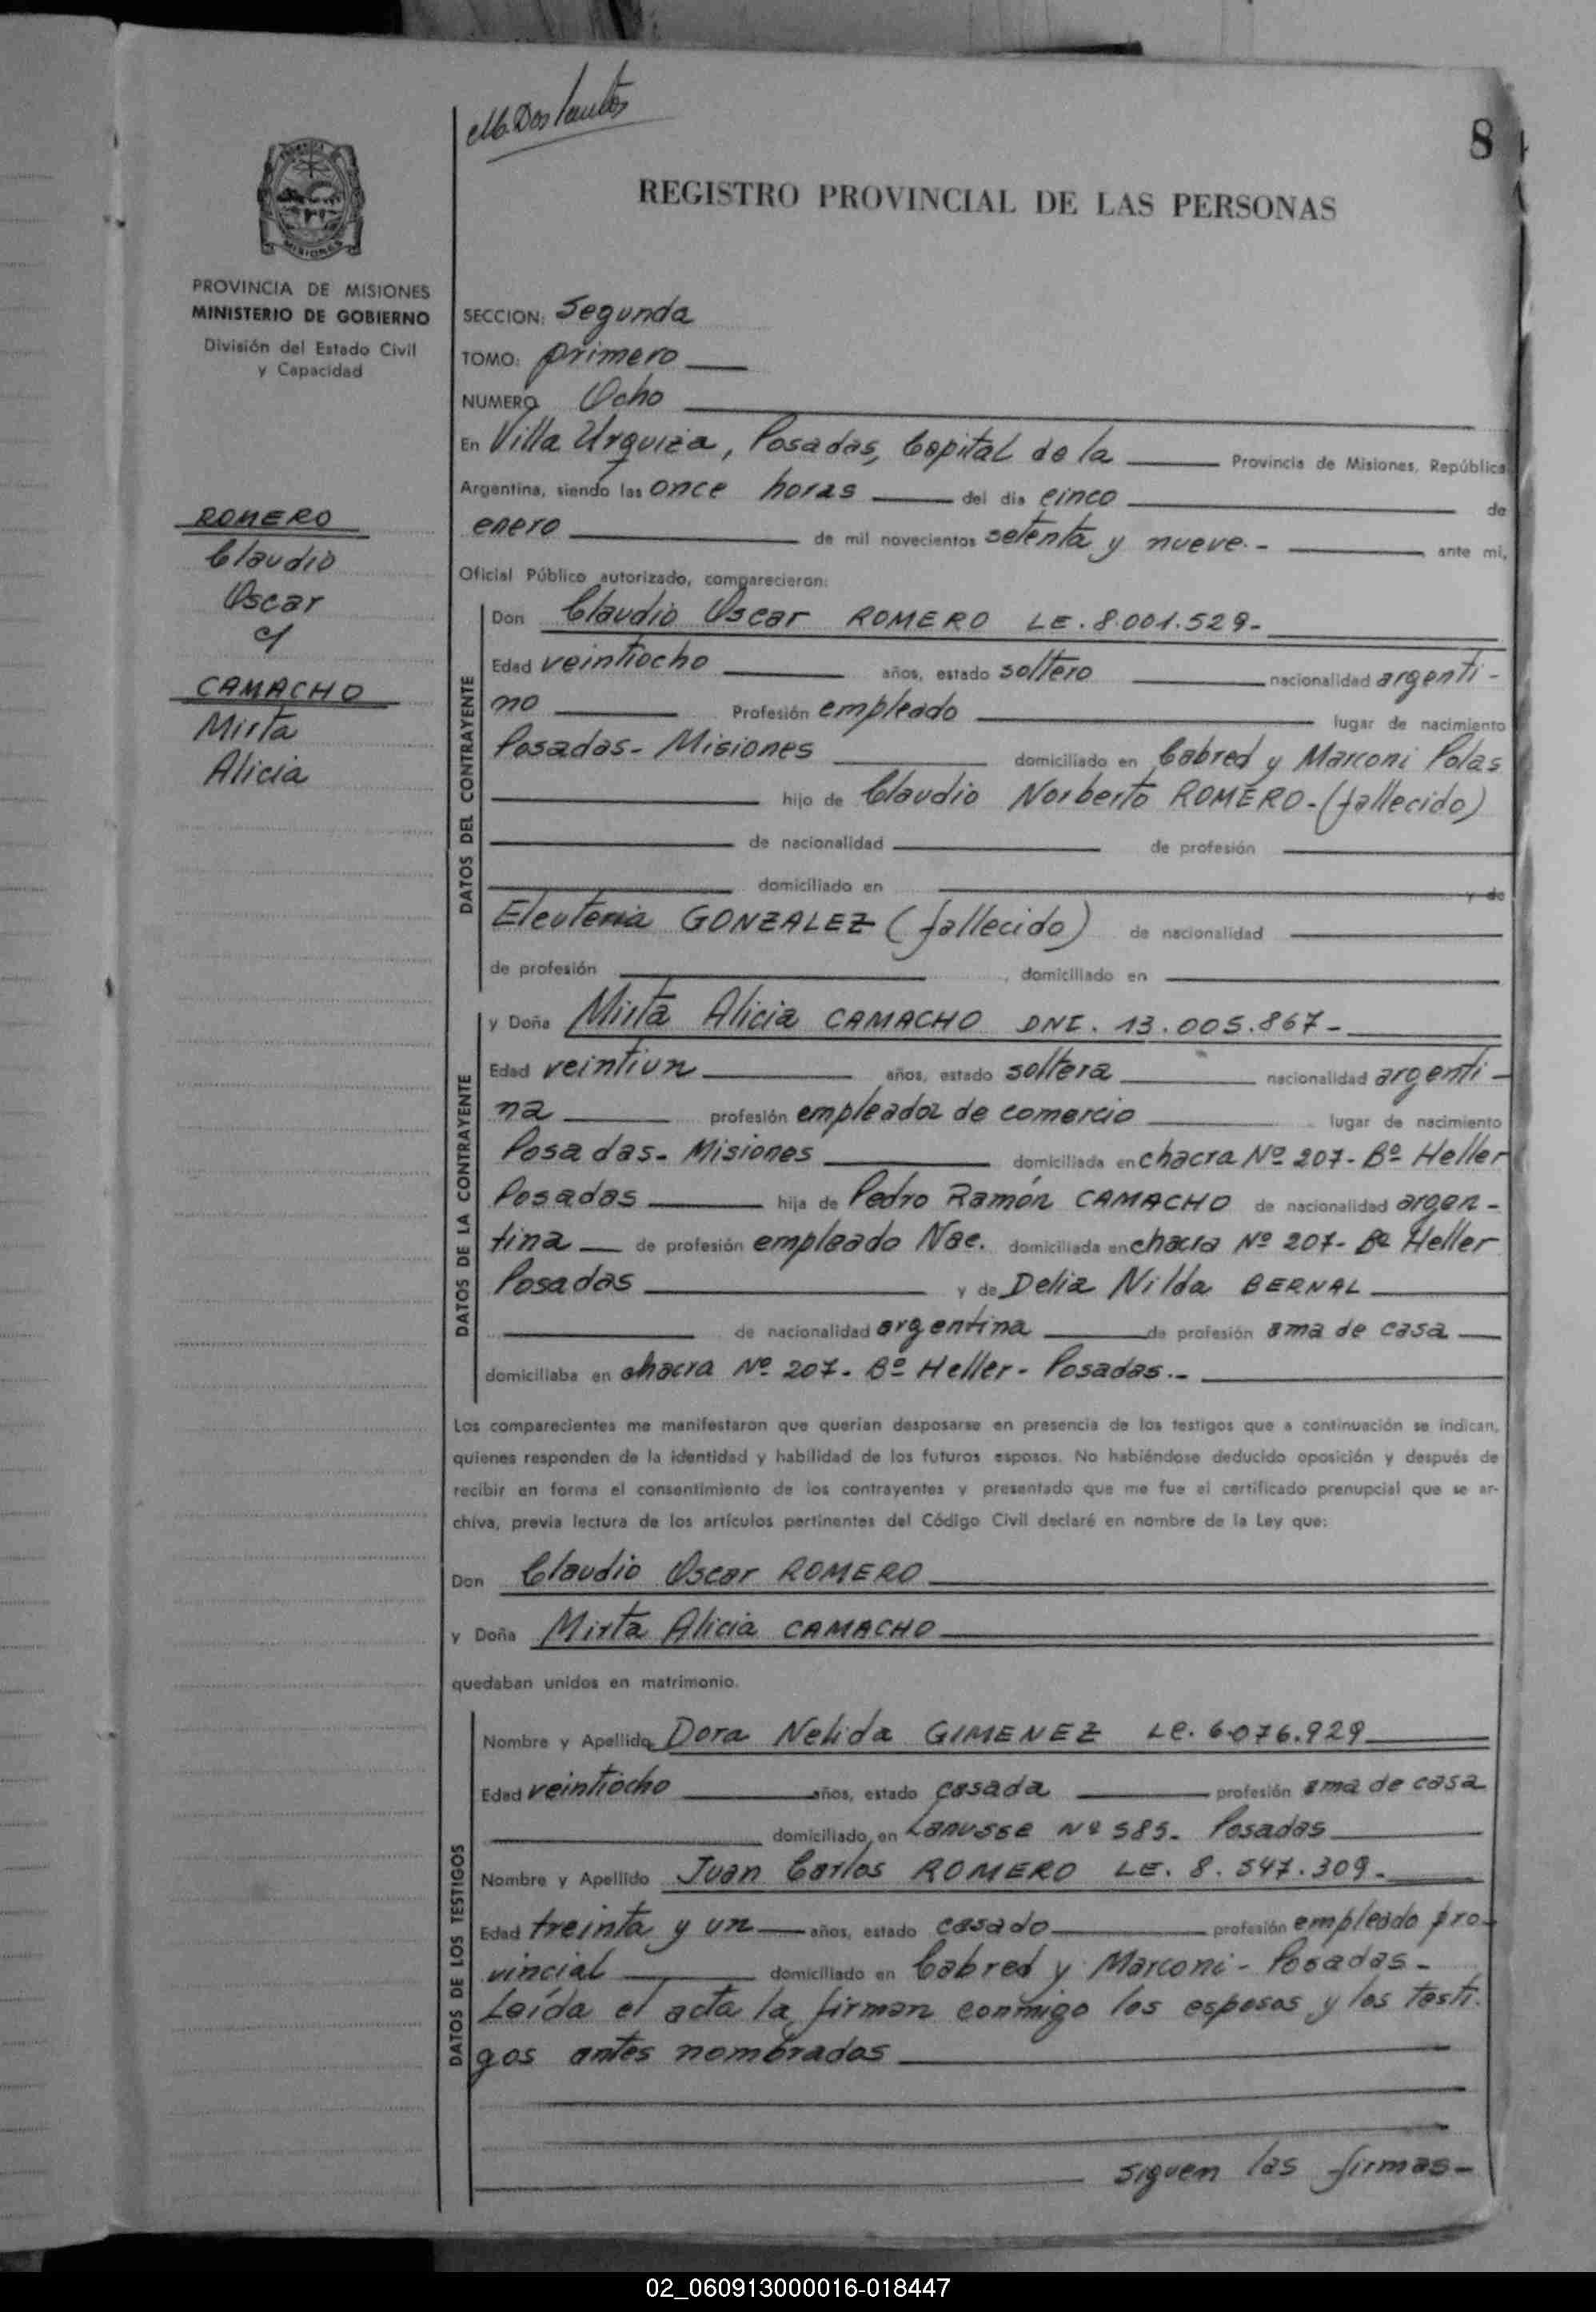 8
REGISTRO PROVINCIAL DE LAS PERSONAS
MISIONES
PROVINCIA DE MISIONES
MINISTERIO DE GOBIERNO
División del Estado Civil
y Capacidad
ROMERO
Claudio
Oscar
c/
CAMACHO
Mirta
Alicia
SECCION: Segunda
TOMO: primero
NUMERO Ocho
En Villa Urquiza, Posadas, Capital de la Provincia de Misiones, República
Argentina, siendo las once horas del día cinco de
enero de mil novecientos setenta y nueve.- ante mí,
Oficial Público autorizado, comparecieron:
DATOS DEL CONTRAYENTE
Don Claudio Oscar ROMERO LE. 8.001.529-
Edad veintiocho años, estado soltero nacionalidad argenti-
no Profesión empleado lugar de nacimiento
Posadas- Misiones domiciliado en Cabred y Marconi Pdas
hijo de Claudio Norberto ROMERO-(fallecido)
de nacionalidad de profesión
domiciliado en y de
Eleuteria GONZALEZ (fallecido) de nacionalidad
de profesión , domiciliado en
DATOS DE LA CONTRAYENTE
y Doña Mirta Alicia CAMACHO DNI. 13.005.867-
Edad veintiun años, estado soltera nacionalidad argenti-
na profesión empleada de comercio lugar de nacimiento
Posadas- Misiones domiciliada en chacra Nº 207- Bº Heller
Posadas hija de Pedro Ramón CAMACHO de nacionalidad argen-
tina de profesión empleado Nac. domiciliada en chacra Nº 207- Bº Heller
Posadas y de Delia Nilda BERNAL
de nacionalidad argentina de profesión ama de casa
domiciliaba en chacra Nº 207- Bº Heller- Posadas.-
Los comparecientes me manifestaron que querían desposarse en presencia de los testigos que a continuación se indican,
quienes responden de la identidad y habilidad de los futuros esposos. No habiéndose deducido oposición y después de
recibir en forma el consentimiento de los contrayentes y presentado que me fue el certificado prenupcial que se ar-
chiva, previa lectura de los artículos pertinentes del Código Civil declaré en nombre de la Ley que:
Don Claudio Oscar ROMERO
y Doña Mirta Alicia CAMACHO
quedaban unidos en matrimonio.
DATOS DE LOS TESTIGOS
Nombre y Apellido Dora Nelida GIMENEZ LC. 6.076.929
Edad veintiocho años, estado casada profesión ama de casa
domiciliado en Lanusse Nº 585- Posadas
Nombre y Apellido Juan Carlos ROMERO LE. 8.547.309-
Edad treinta y un años, estado casado profesión empleado pro-
vincial domiciliado en Cabred y Marconi- Posadas-
Leída el acta la firman conmigo los esposos y los testi-
gos antes nombrados
siguen las firmas-
02_060913000016-018447